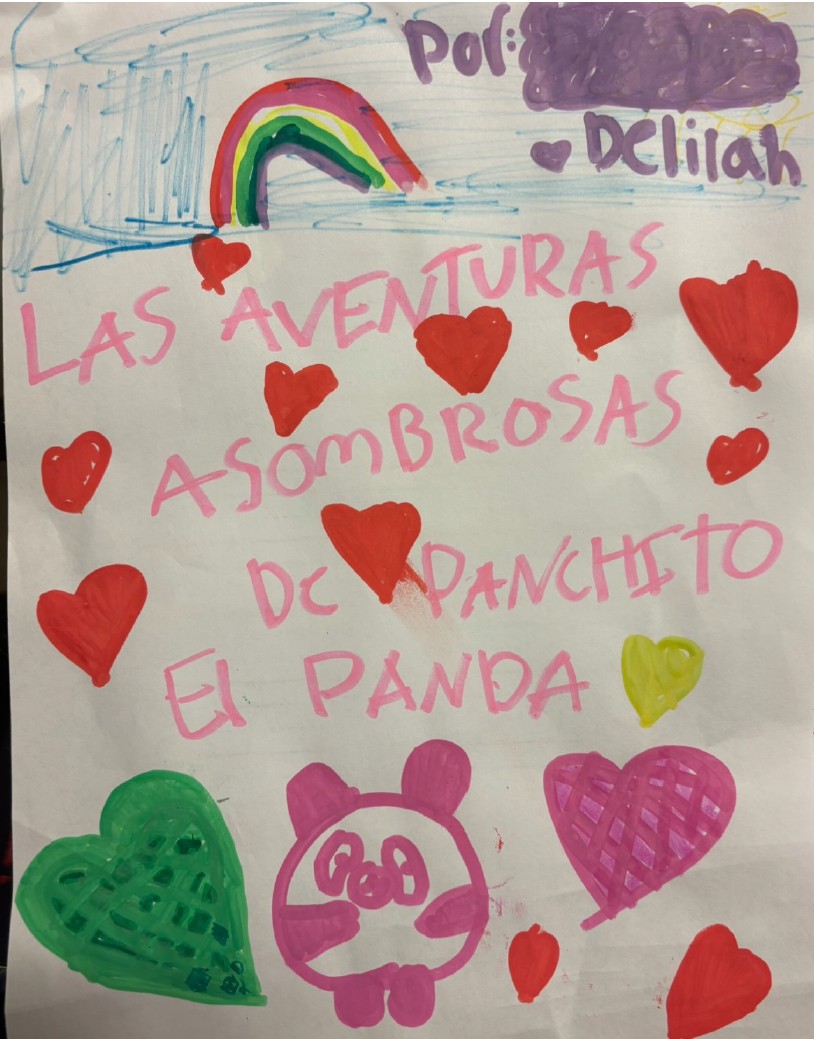 Por:
Delilah
LAS AVENTURAS
ASOmBROSAS
DE PANCHITO
El PANDA